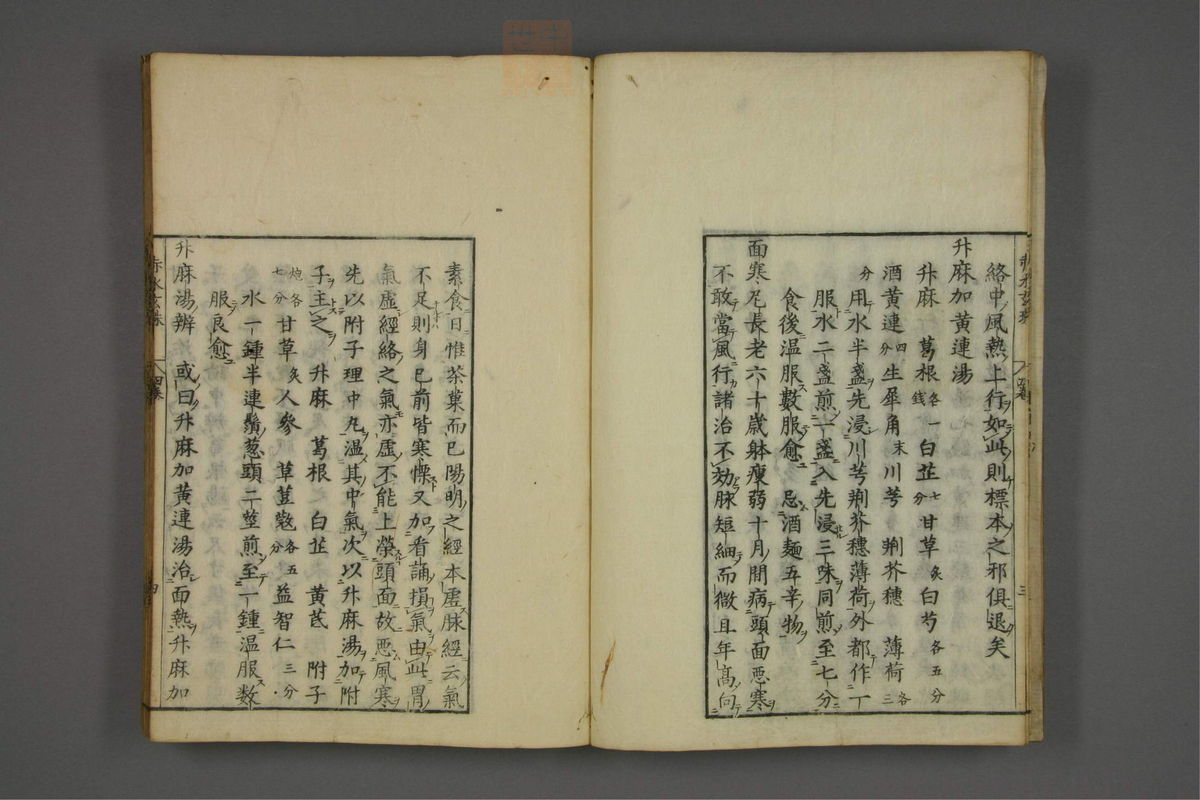 絡中風熱上行如此則標本之邪俱退矣
升麻加黃連湯
升麻 葛根各一錢 白芷七分 甘草炙 白芍各五分
酒黃連四分 生犀角末 川芎 荆芥穗 薄荷各三分
用水半盞先浸川芎荆芥穗薄荷外都作一
服水二盞煎一盞入先浸三味同煎至七分
食後温服數服愈 忌酒麵五辛物
面寒 尼長老六十歲躰瘦弱十月間病頭面悪寒
不敢當風行諸治不効脉短細而微且年髙向
素食日惟茶菓而已陽明之經本虚脉經云氣
不足則身已前皆寒慄又加看誦損氣由此胃
氣虚經絡之氣亦虚不能上榮頭面故悪風寒
先以附子理中丸温其中氣次以升麻湯加附
子主之 升麻 葛根 白芷 黃芪 附子
炮各七分 甘草炙 人參 草荳蔲各五分 益智仁三分
水一鍾半連鬚葱頭二莖煎至一鍾温服数
服良愈
升麻湯辨 或曰升麻加黃連湯治面熱升麻加
赤水玄珠
三
四